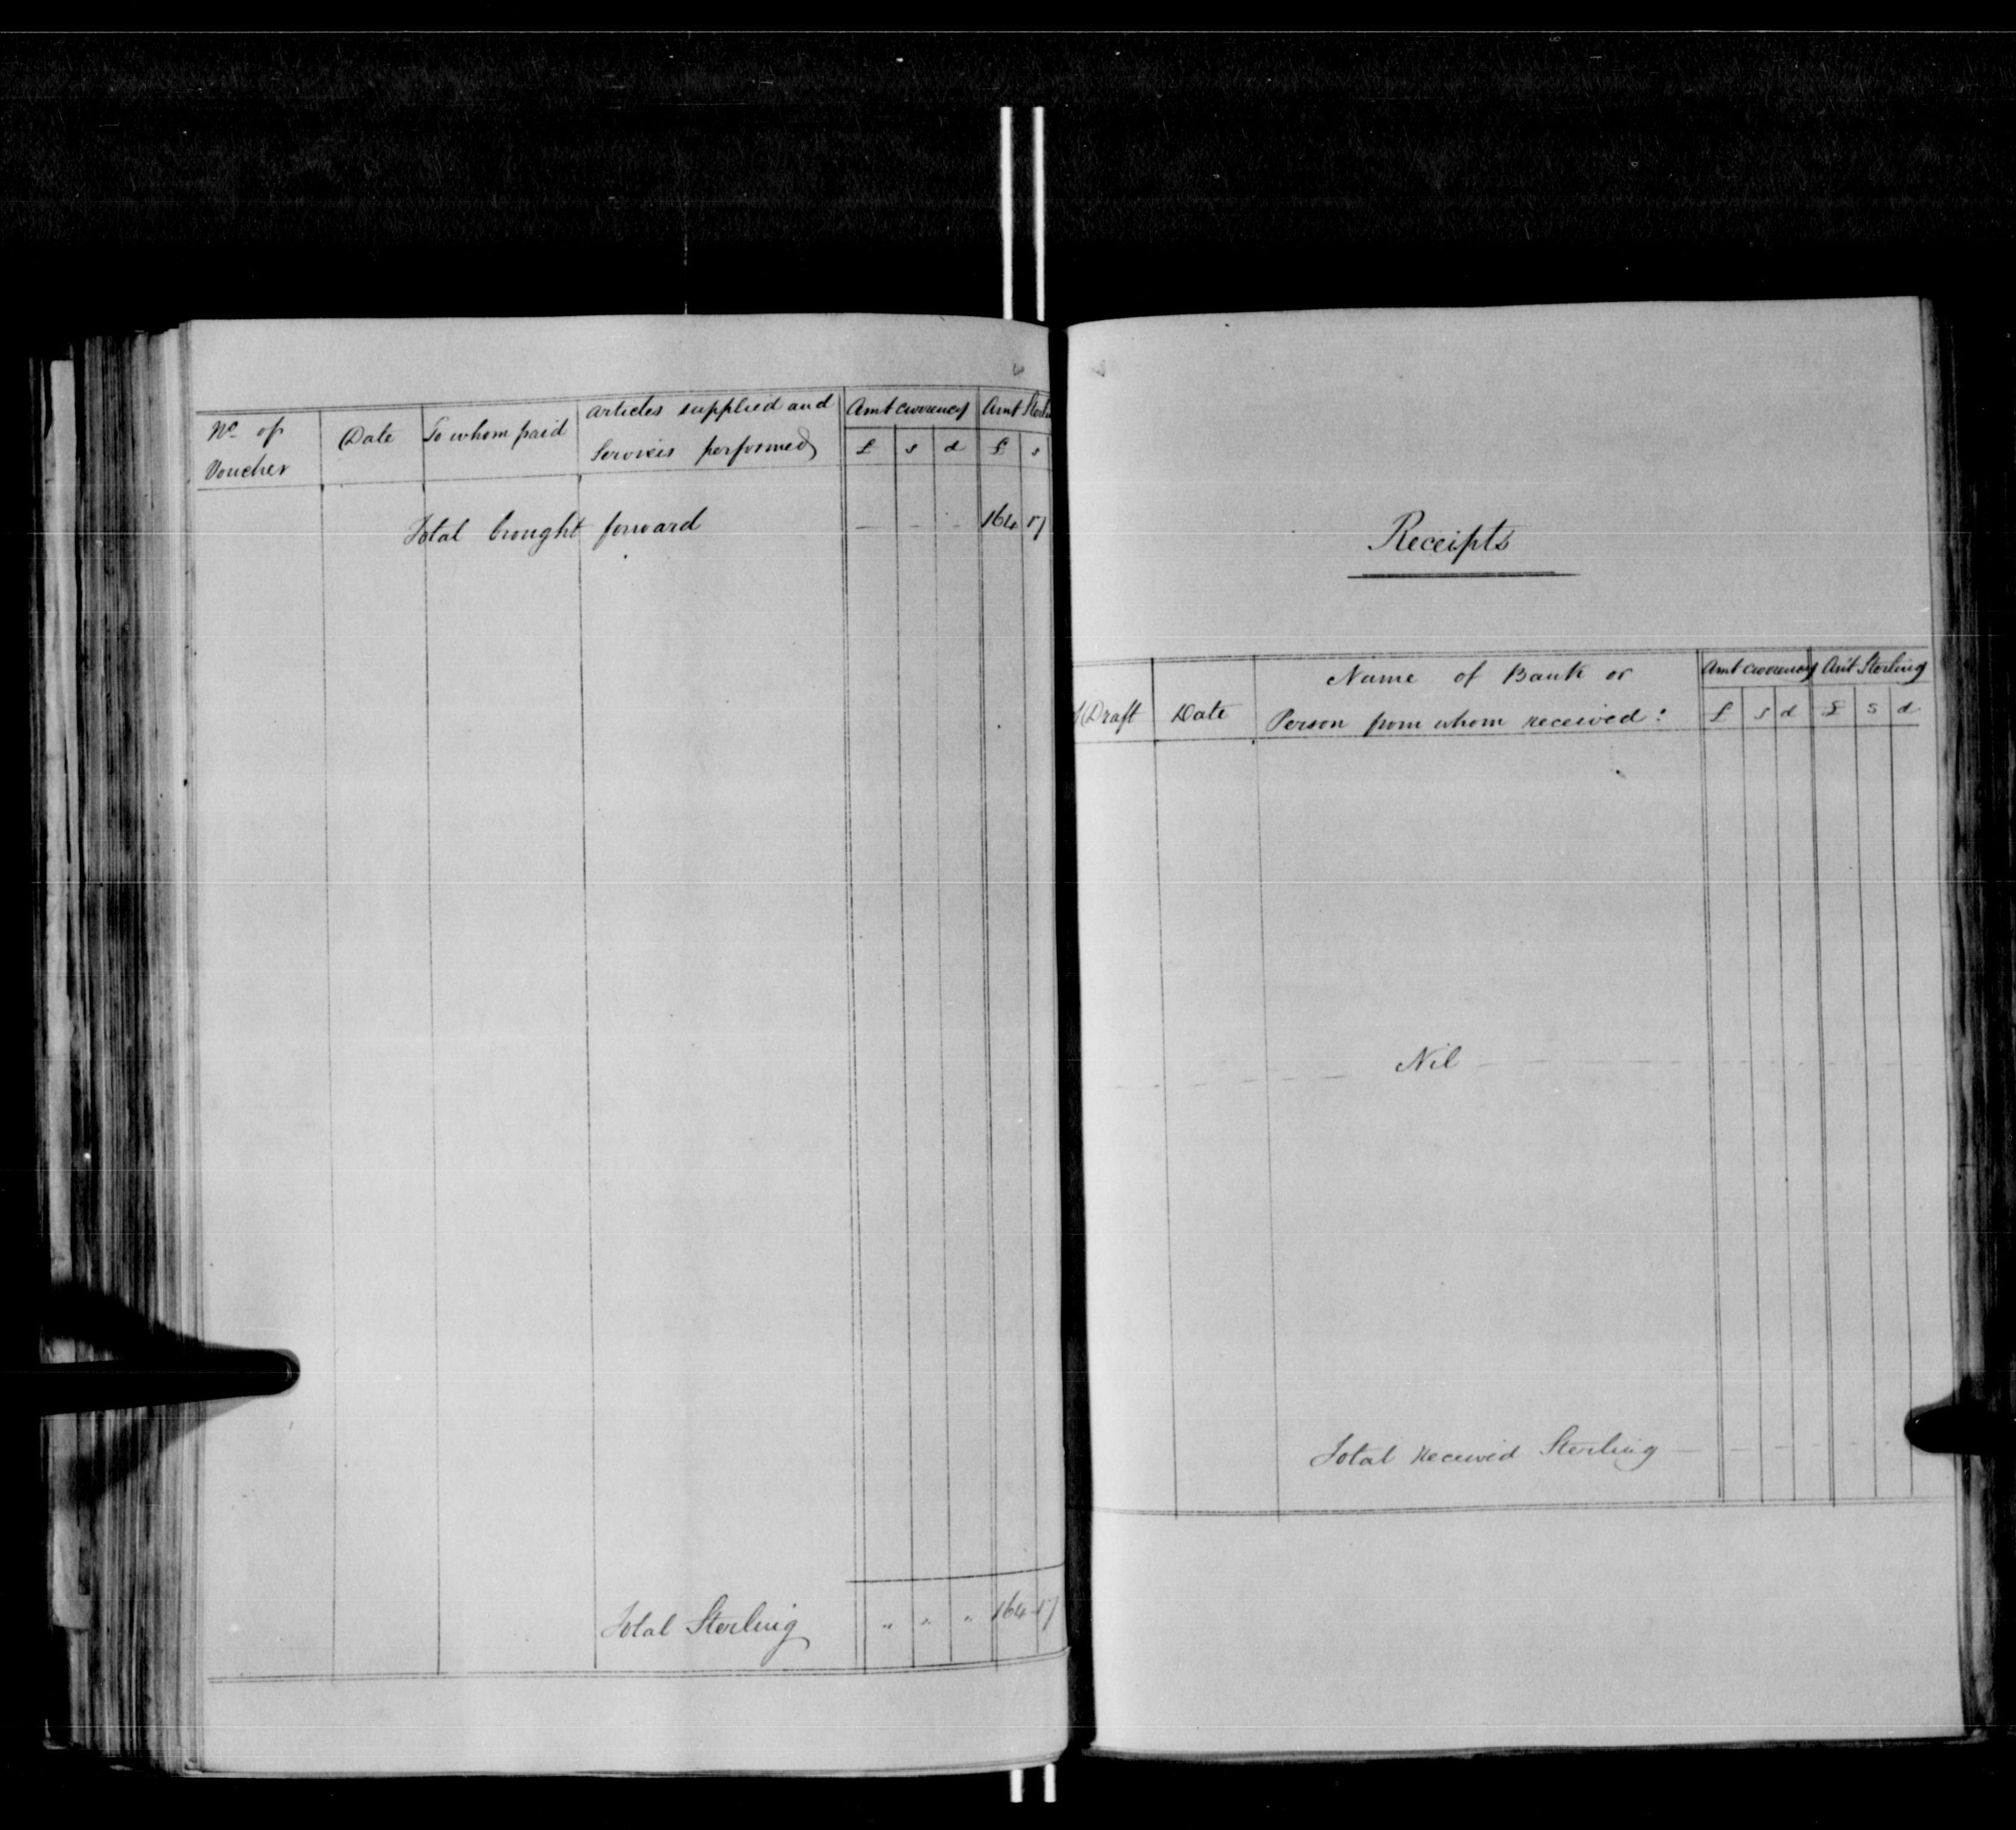 No of Voucher | Date | To whom paid | articles supplied and Services performed | Amt currency | Amt
£ s d £ s
Total brought forward — — — 164 17
Total Sterling " " " 164 17
Receipts
Draft | Date | Name of Bank or Person from whom received: | Amt currency | Amt Sterling
£ s d £ s d
Nil
Total Received Sterling